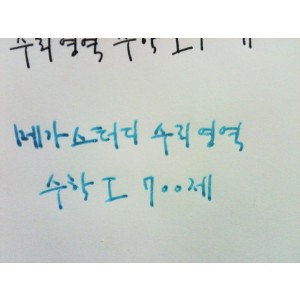 수리영역 수학 I
메가스터디 수리영역
수학 I 700제